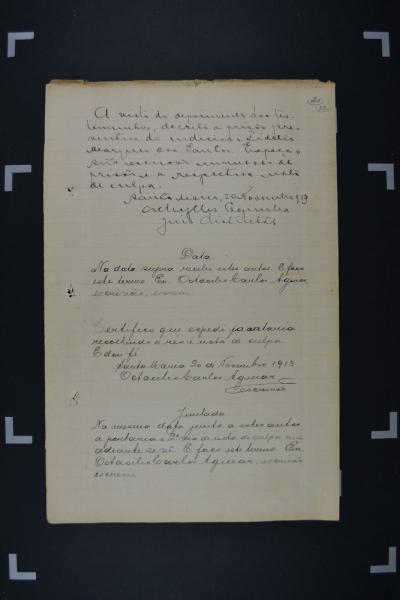 A vista do depoimento das tes-
temunhas, decreto a prisão pre-
ventiva do indiciado Fidelis
Marques dos Santos. Expeça o
escrivão mandado de
prisão e a respectiva nota
de culpa.
Santa Maria, 20 Novembro 1913
Juiz Districtal
Data
Na data supra recebi estes autos. E faço
este termo. Eu, Octacilio Carlos Aguiar,
escrivão, escrevi
Certifico que expedi portaria
recolhendo o réo e nota de culpa
E dou fé
Santa Maria 20 de Novembro 1913
Octacilio Carlos Aguiar
Escrivão
Juntada
Na mesma data junto a estes autos
a portaria e 2ª via da nota de culpa que
adiante se vê. E faço este termo. Eu,
Octacilio Carlos Aguiar, escrivão
escrevi